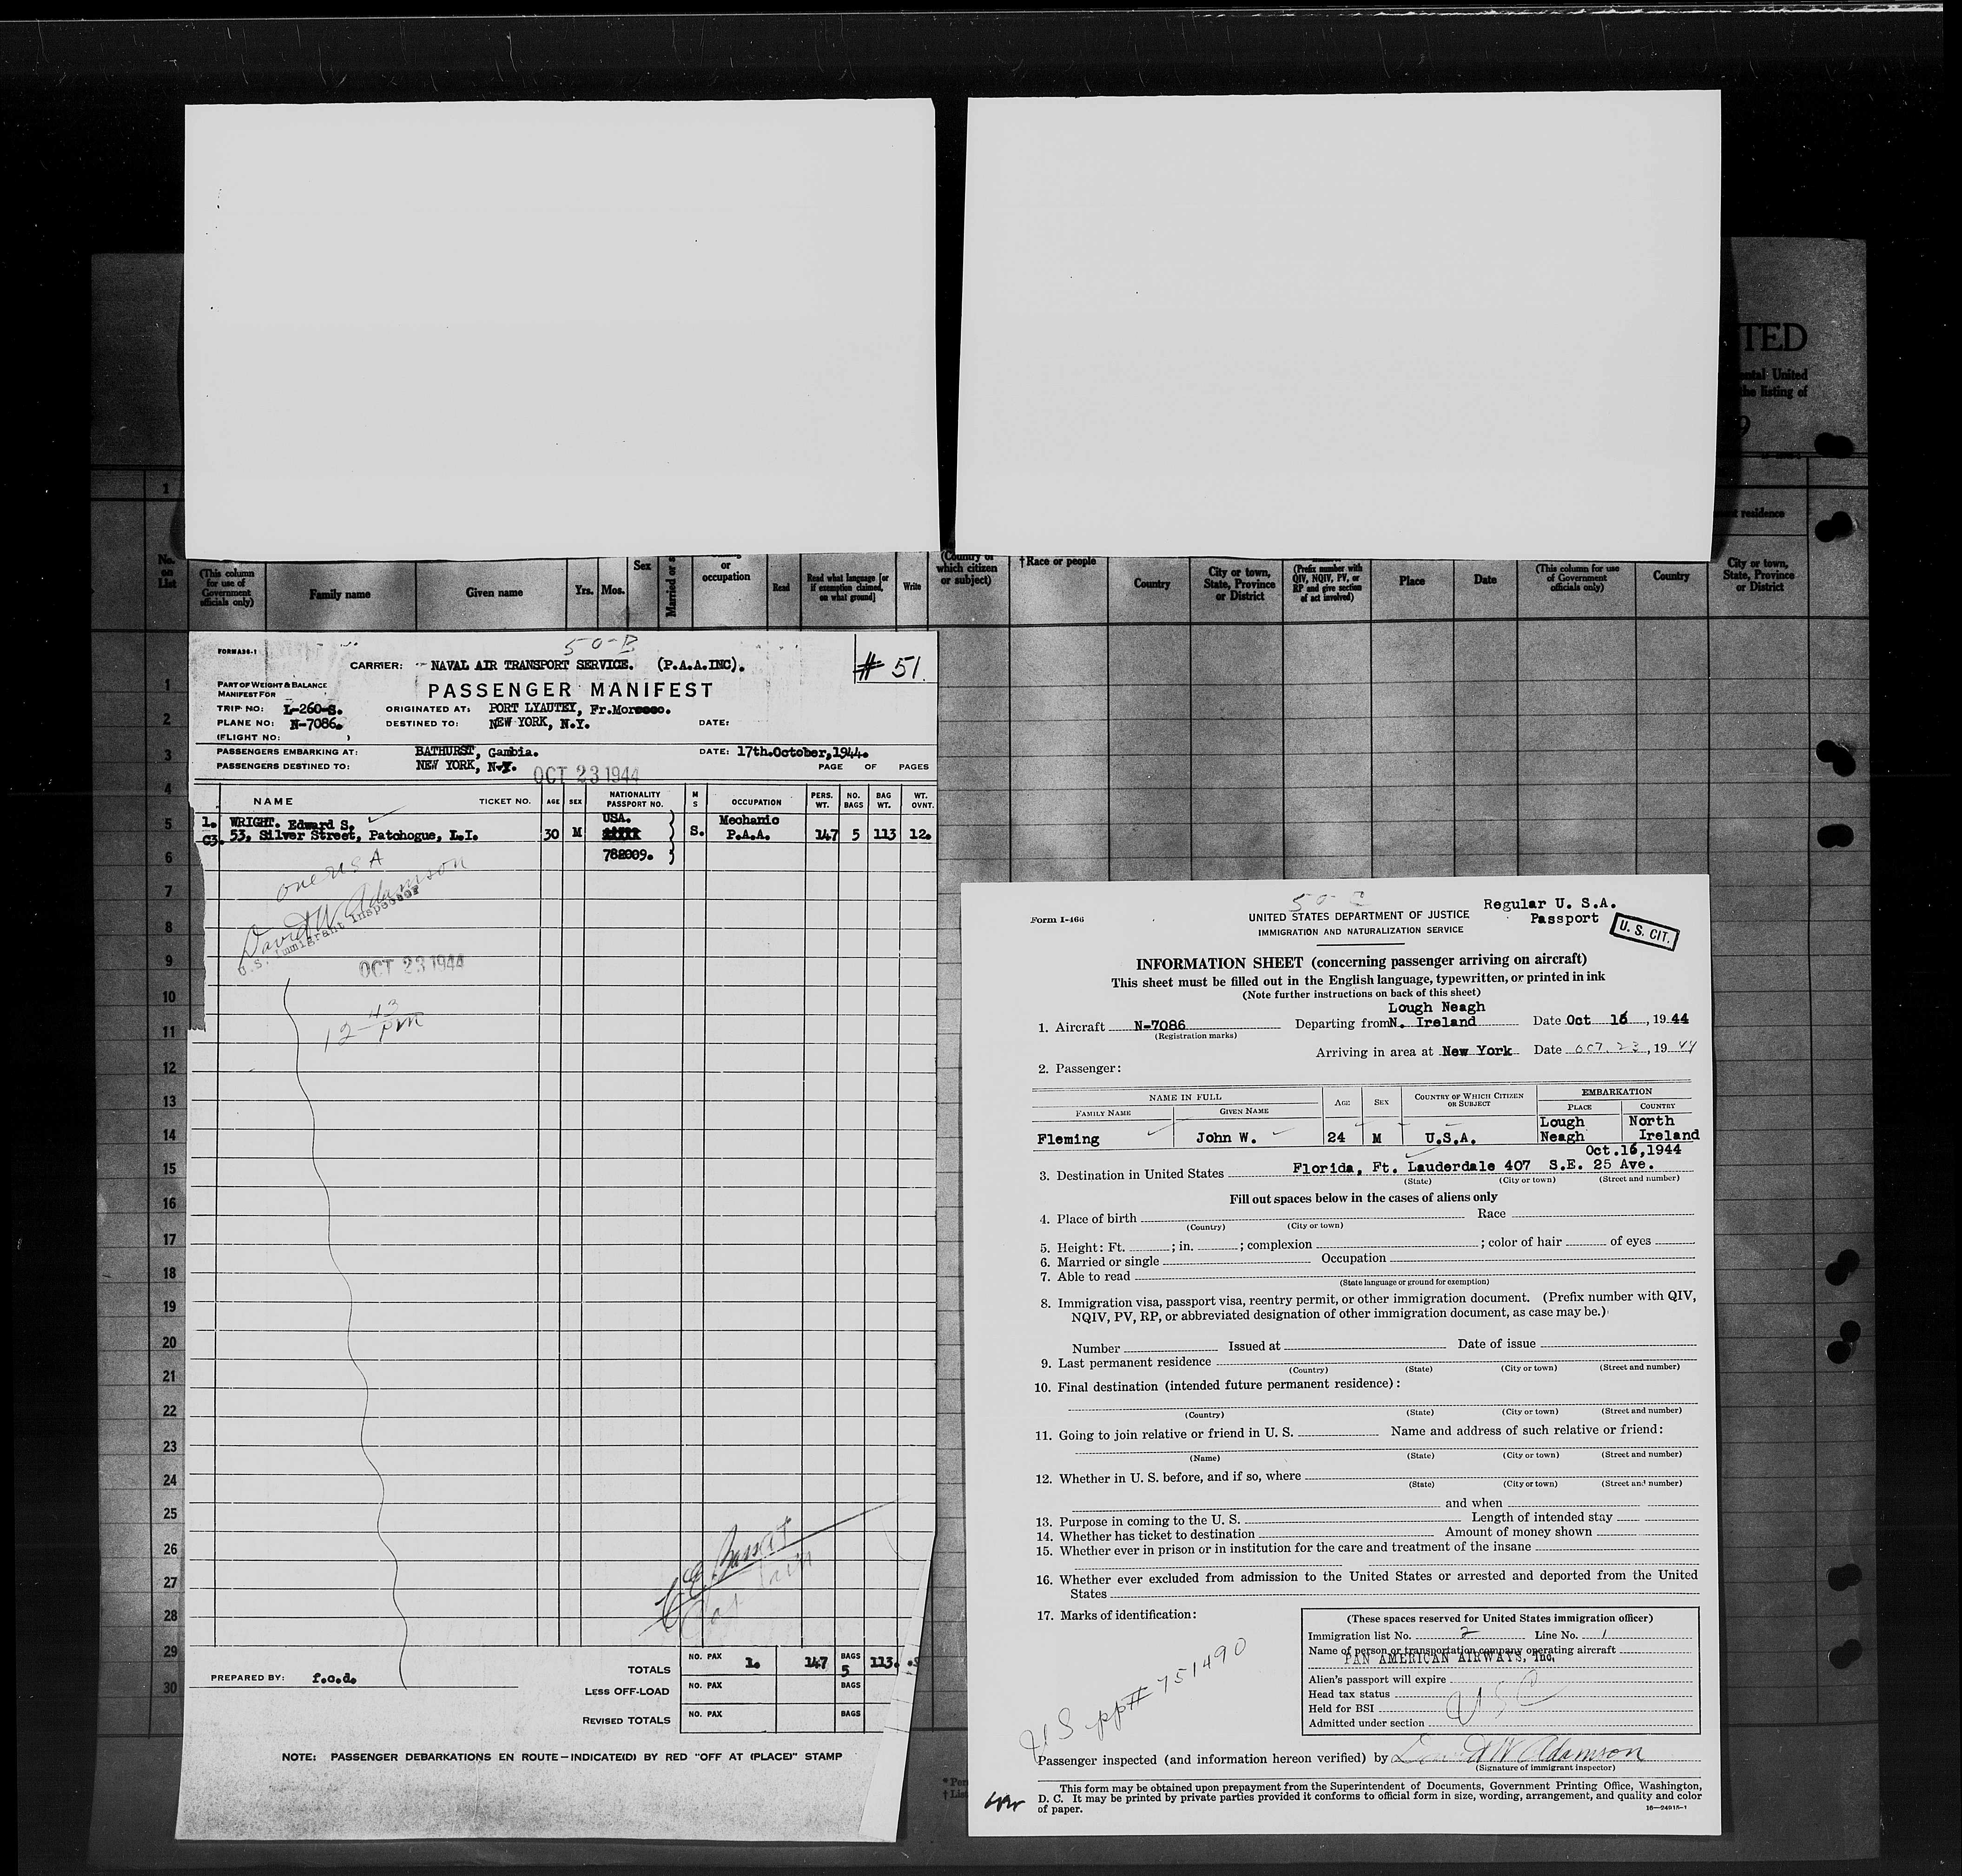 TED
ental United
the listing of
9
1
nt residence
No.
on
List
(This column
for use of
Government
officials only)
Family name
Given name
Yrs.
Mos.
Sex
Married or s
or
occupation
Read
Read what language [or
if exemption claimed,
on what ground]
Write
(Country of
which citizen
or subject)
†Race or people
Country
City or town,
State, Province
or District
(Prefix number with
QIV, NQIV, PV, or
RP and give section
of act involved)
Place
Date
(This column for use
of Government
officials only)
Country
City or town,
State, Province
or District
1
2
3
4
5
6
7
8
9
10
11
12
13
14
15
16
17
18
19
20
21
22
23
24
25
26
27
28
29
30
50-B
FORM A36-1
CARRIER: NAVAL AIR TRANSPORT SERVICE. (P.A.A.INC).
# 51.
PART OF WEIGHT & BALANCE
MANIFEST FOR
PASSENGER MANIFEST
TRIP NO: L-260-S. ORIGINATED AT: PORT LYAUTEY, Fr.Morocco.
PLANE NO: N-7086. DESTINED TO: NEW YORK, N.Y. DATE:
(FLIGHT NO: )
PASSENGERS EMBARKING AT: BATHURST, Gambia. DATE: 17th.October,1944.
PASSENGERS DESTINED TO: NEW YORK, N.Y. PAGE OF PAGES
OCT 23 1944
NAME TICKET NO. AGE SEX NATIONALITY PASSPORT NO. M S OCCUPATION PERS. WT. NO. BAGS BAG WT. WT. OVNT.
1. WRIGHT. Edward S. USA. Mechanic
C3. 53, Silver Street, Patchogue, L.I. 30 M ) S. P.A.A. 147 5 113 12.
782009. )
one USA
David W Adamson
U.S. Immigrant Inspector
OCT 23 1944
12 43 pm
C E Bassett
Captain
TOTALS NO. PAX 1. 147 BAGS 5 113.
PREPARED BY: f.o.d.
LESS OFF-LOAD NO. PAX BAGS
REVISED TOTALS NO. PAX BAGS
NOTE: PASSENGER DEBARKATIONS EN ROUTE—INDICATE(D) BY RED "OFF AT (PLACE)" STAMP
* Per
† List
Form I-466
UNITED STATES DEPARTMENT OF JUSTICE
IMMIGRATION AND NATURALIZATION SERVICE
Regular U. S.A.
Passport
U. S. CIT.
INFORMATION SHEET (concerning passenger arriving on aircraft)
This sheet must be filled out in the English language, typewritten, or printed in ink
(Note further instructions on back of this sheet)
Lough Neagh
1. Aircraft N-7086 Departing from N. Ireland Date Oct 16, 1944
(Registration marks)
Arriving in area at New York Date OCT. 23, 1944
2. Passenger:
NAME IN FULL AGE SEX COUNTRY OF WHICH CITIZEN OR SUBJECT EMBARKATION
FAMILY NAME GIVEN NAME PLACE COUNTRY
Lough North
Fleming John W. 24 M U.S.A. Neagh Ireland
Oct.16,1944
3. Destination in United States Florida, Ft. Lauderdale 407 S.E. 25 Ave.
(State) (City or town) (Street and number)
Fill out spaces below in the cases of aliens only
4. Place of birth Race
(Country) (City or town)
5. Height: Ft. ; in. ; complexion ; color of hair of eyes
6. Married or single Occupation
7. Able to read
(State language or ground for exemption)
8. Immigration visa, passport visa, reentry permit, or other immigration document. (Prefix number with QIV,
NQIV, PV, RP, or abbreviated designation of other immigration document, as case may be.)
Number Issued at Date of issue
9. Last permanent residence
(Country) (State) (City or town) (Street and number)
10. Final destination (intended future permanent residence):
(Country) (State) (City or town) (Street and number)
11. Going to join relative or friend in U. S. Name and address of such relative or friend:
(Name) (State) (City or town) (Street and number)
12. Whether in U. S. before, and if so, where
(State) (City or town) (Street and number)
and when
13. Purpose in coming to the U. S. Length of intended stay
14. Whether has ticket to destination Amount of money shown
15. Whether ever in prison or in institution for the care and treatment of the insane
16. Whether ever excluded from admission to the United States or arrested and deported from the United
States
17. Marks of identification:
(These spaces reserved for United States immigration officer)
Immigration list No. 2 Line No. 1
Name of person or transportation company operating aircraft
PAN AMERICAN AIRWAYS, Inc.
Alien's passport will expire
Head tax status
Held for BSI
Admitted under section
USC
US pp# 751490
Passenger inspected (and information hereon verified) by David W Adamson
(Signature of immigrant inspector)
This form may be obtained upon prepayment from the Superintendent of Documents, Government Printing Office, Washington,
D. C. It may be printed by private parties provided it conforms to official form in size, wording, arrangement, and quality and color
of paper.
16—24915-1